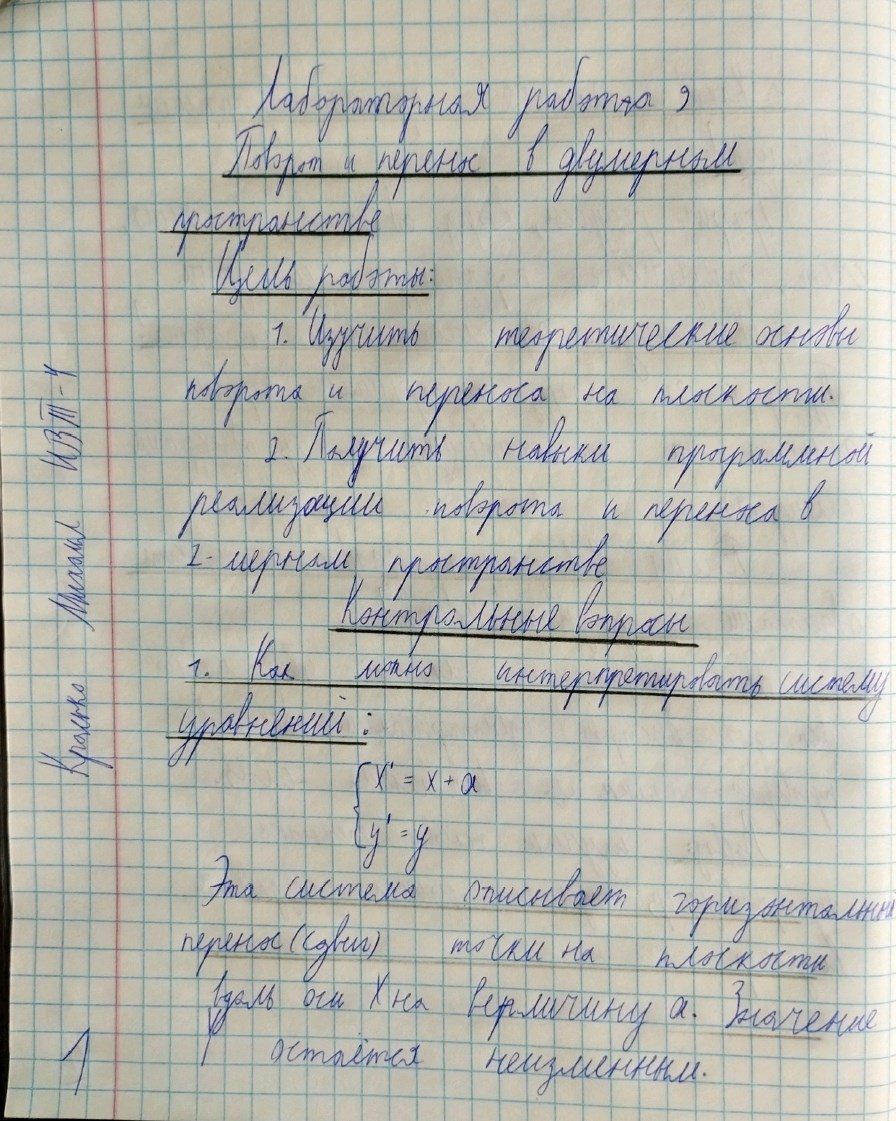 Лабораторная работа 9
Поворот и перенос в двумерном
пространстве
Цель работы:
1. Изучить теоретические основы
поворота и переноса на плоскости.
2. Получить навыки программной
реализации поворота и переноса в
2-мерном пространстве
Контрольные вопросы
1. Как можно интерпретировать систему
уравнений:
x' = x + a
y' = y
Эта система описывает горизонтальный
перенос (сдвиг) точки на плоскости
вдоль оси X на величину a. Значение
Y остаётся неизменным.
Михаил ИВТ-4
1